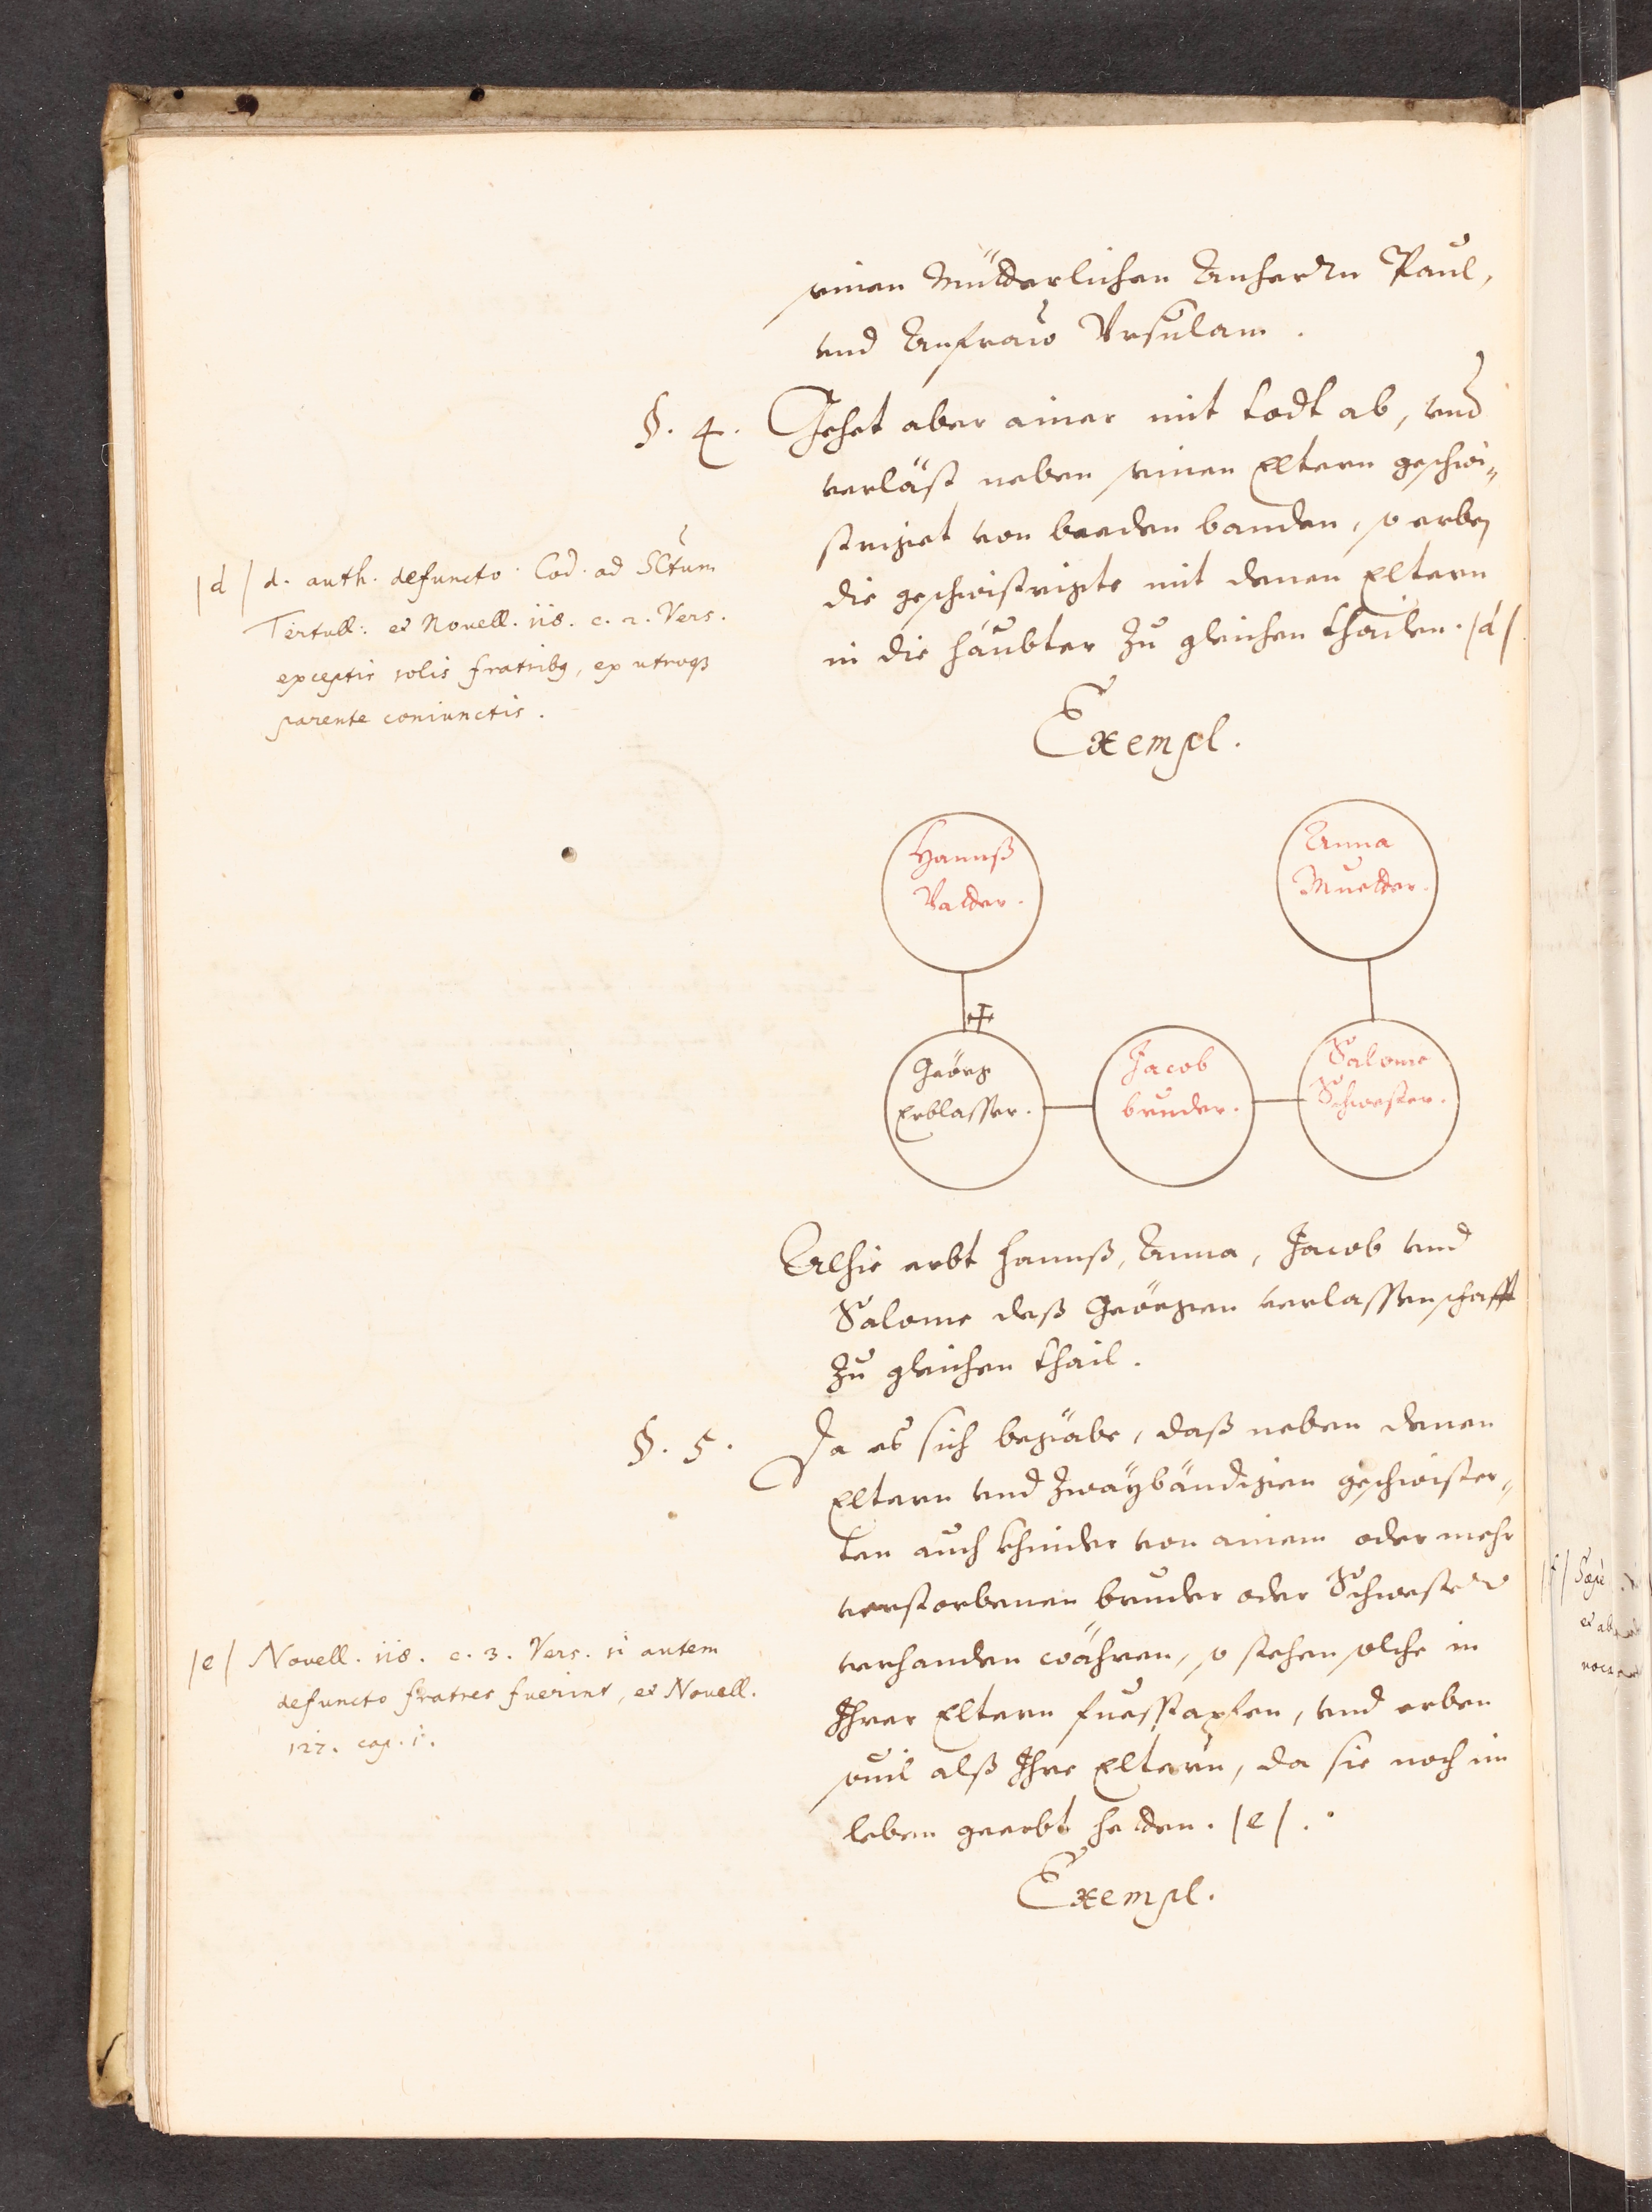 seinen Müetterlichen Anherrn Paul,
vnd Anfraw Vrsulam.
§. 4. Gehet aber ainer mit todt ab, vnd
verläst neben seinen Eltern geschwi„
striget von beeden banden, so erben
die geschwistrigte mit denen Eltern
in die häubter zu gleichen thailen. /d/
/d/ d. auth. defuncto. Cod. ad SCtum
Tertull: et Novell. 118. c. 2. Vers.
exceptis solis fratribq, ex utroqz
parente coniunctis.
Exempl.
Hannß
Vatter.
Anna
Muetter.
Geörg
Erblasser.
Jacob
bruder.
Salome
Schwester.
Alhie erbt Hannß, Anna, Jacob vnd
Salome deß Geörgen verlassenschafft
zu gleichen thail.
§. 5. Da es sich begäbe, daß neben denen
Eltern vnd zwaÿbändigen geschwister„
ten auch khinder von ainem oder mehr
verstorbenen bruder oder Schwester
verhanden währen, so stehen solche in
Ihrer Eltern fuesstapfen, vnd erben
souil alß Ihre Eltern, da sie noch im
leben geerbt hetten. /e/.
/e/ Novell. 118. c. 3. Vers. si autem
defuncto fratres fuerint, et Novell.
127. cap. 1.
Exempl.